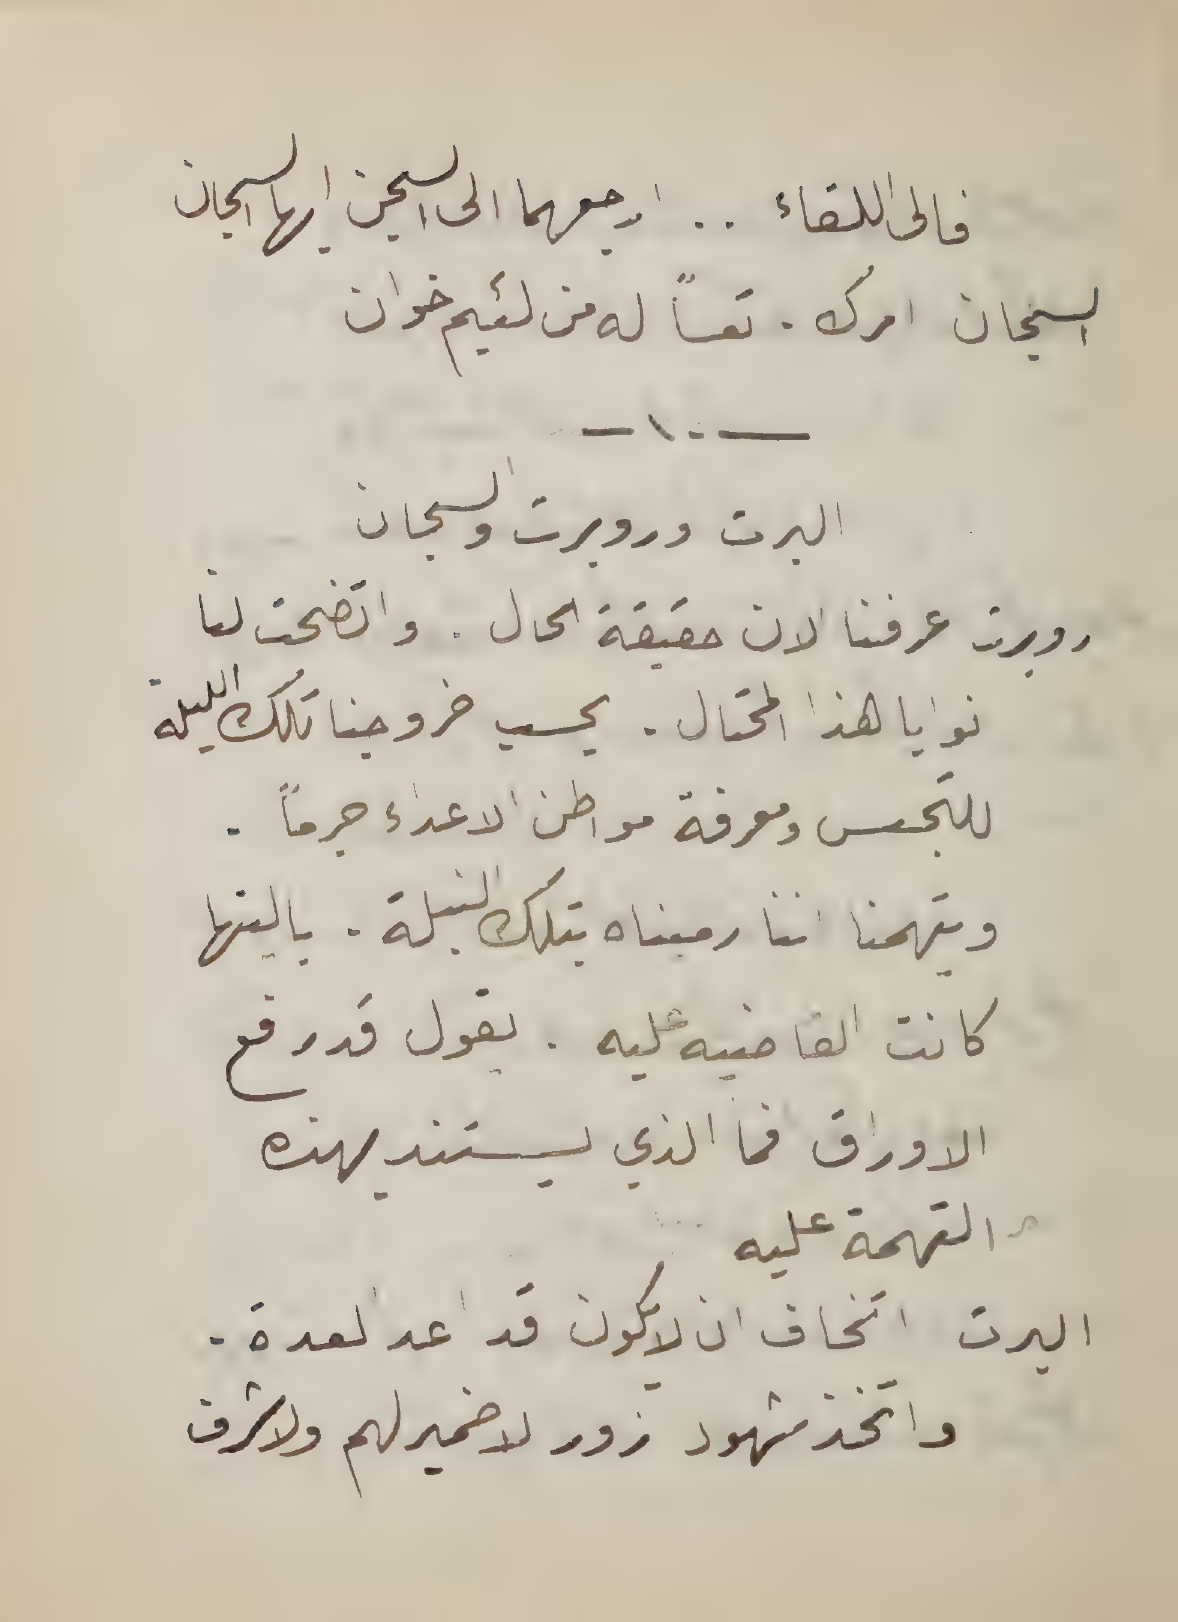 فالى اللقاء .. ارجعهما الى السجن ايها السجان
السجان امرك . تعساً له من لئيم خوان
— ١٠ —
البرت وروبرت والسجان
روبرت عرفنا الان حقيقة الحال . واتضحت لنا
نوايا هذا المحتال . يحسب خروجنا تلك الليلة
للتجسس ومعرفة مواطن الاعداء جرماً .
ويتهمنا اننا رميناه بتلك النبلة . ياليتها
كانت القاضيه عليه . يقول قد رفع
الاوراق فما الذي يستند بهذه
التهمة عليه
البرت اتخاف ان لا يكون قد اعد العدة .
واتخذ شهود زور لا ضمير لهم ولا شرف